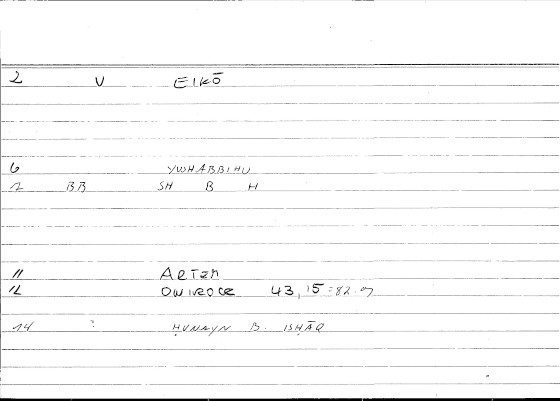 2 V EIKŌ
6 YWHABBIHU
7 BB SH B H
11 ARTEM
12 OWIROCR 43,15 = 82.9
14 : ḤUNAYN B. ISḤĀQ